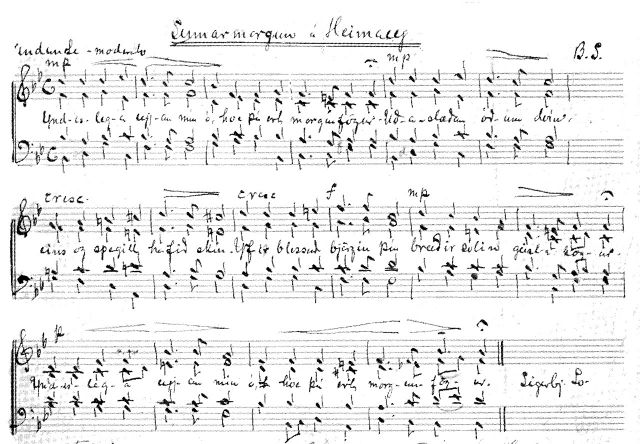 Sumarmorgun á Heimaey
andante-moderato
mp mp B.S.
Und-is-leg-a eyj-an mín ó, hve þú ert morgunfögur Úð-a-slæðan ör-um dvín,
cresc. cresc f mp
eins og spegill hafið skín. Yfir blessuð björgin þín breiðir sólin geisl-a kög-ur.
p
Und-is-leg-a eyj-an mín ó, hve þú ert morg-un-fög-ur. Sigurbj. Sv-